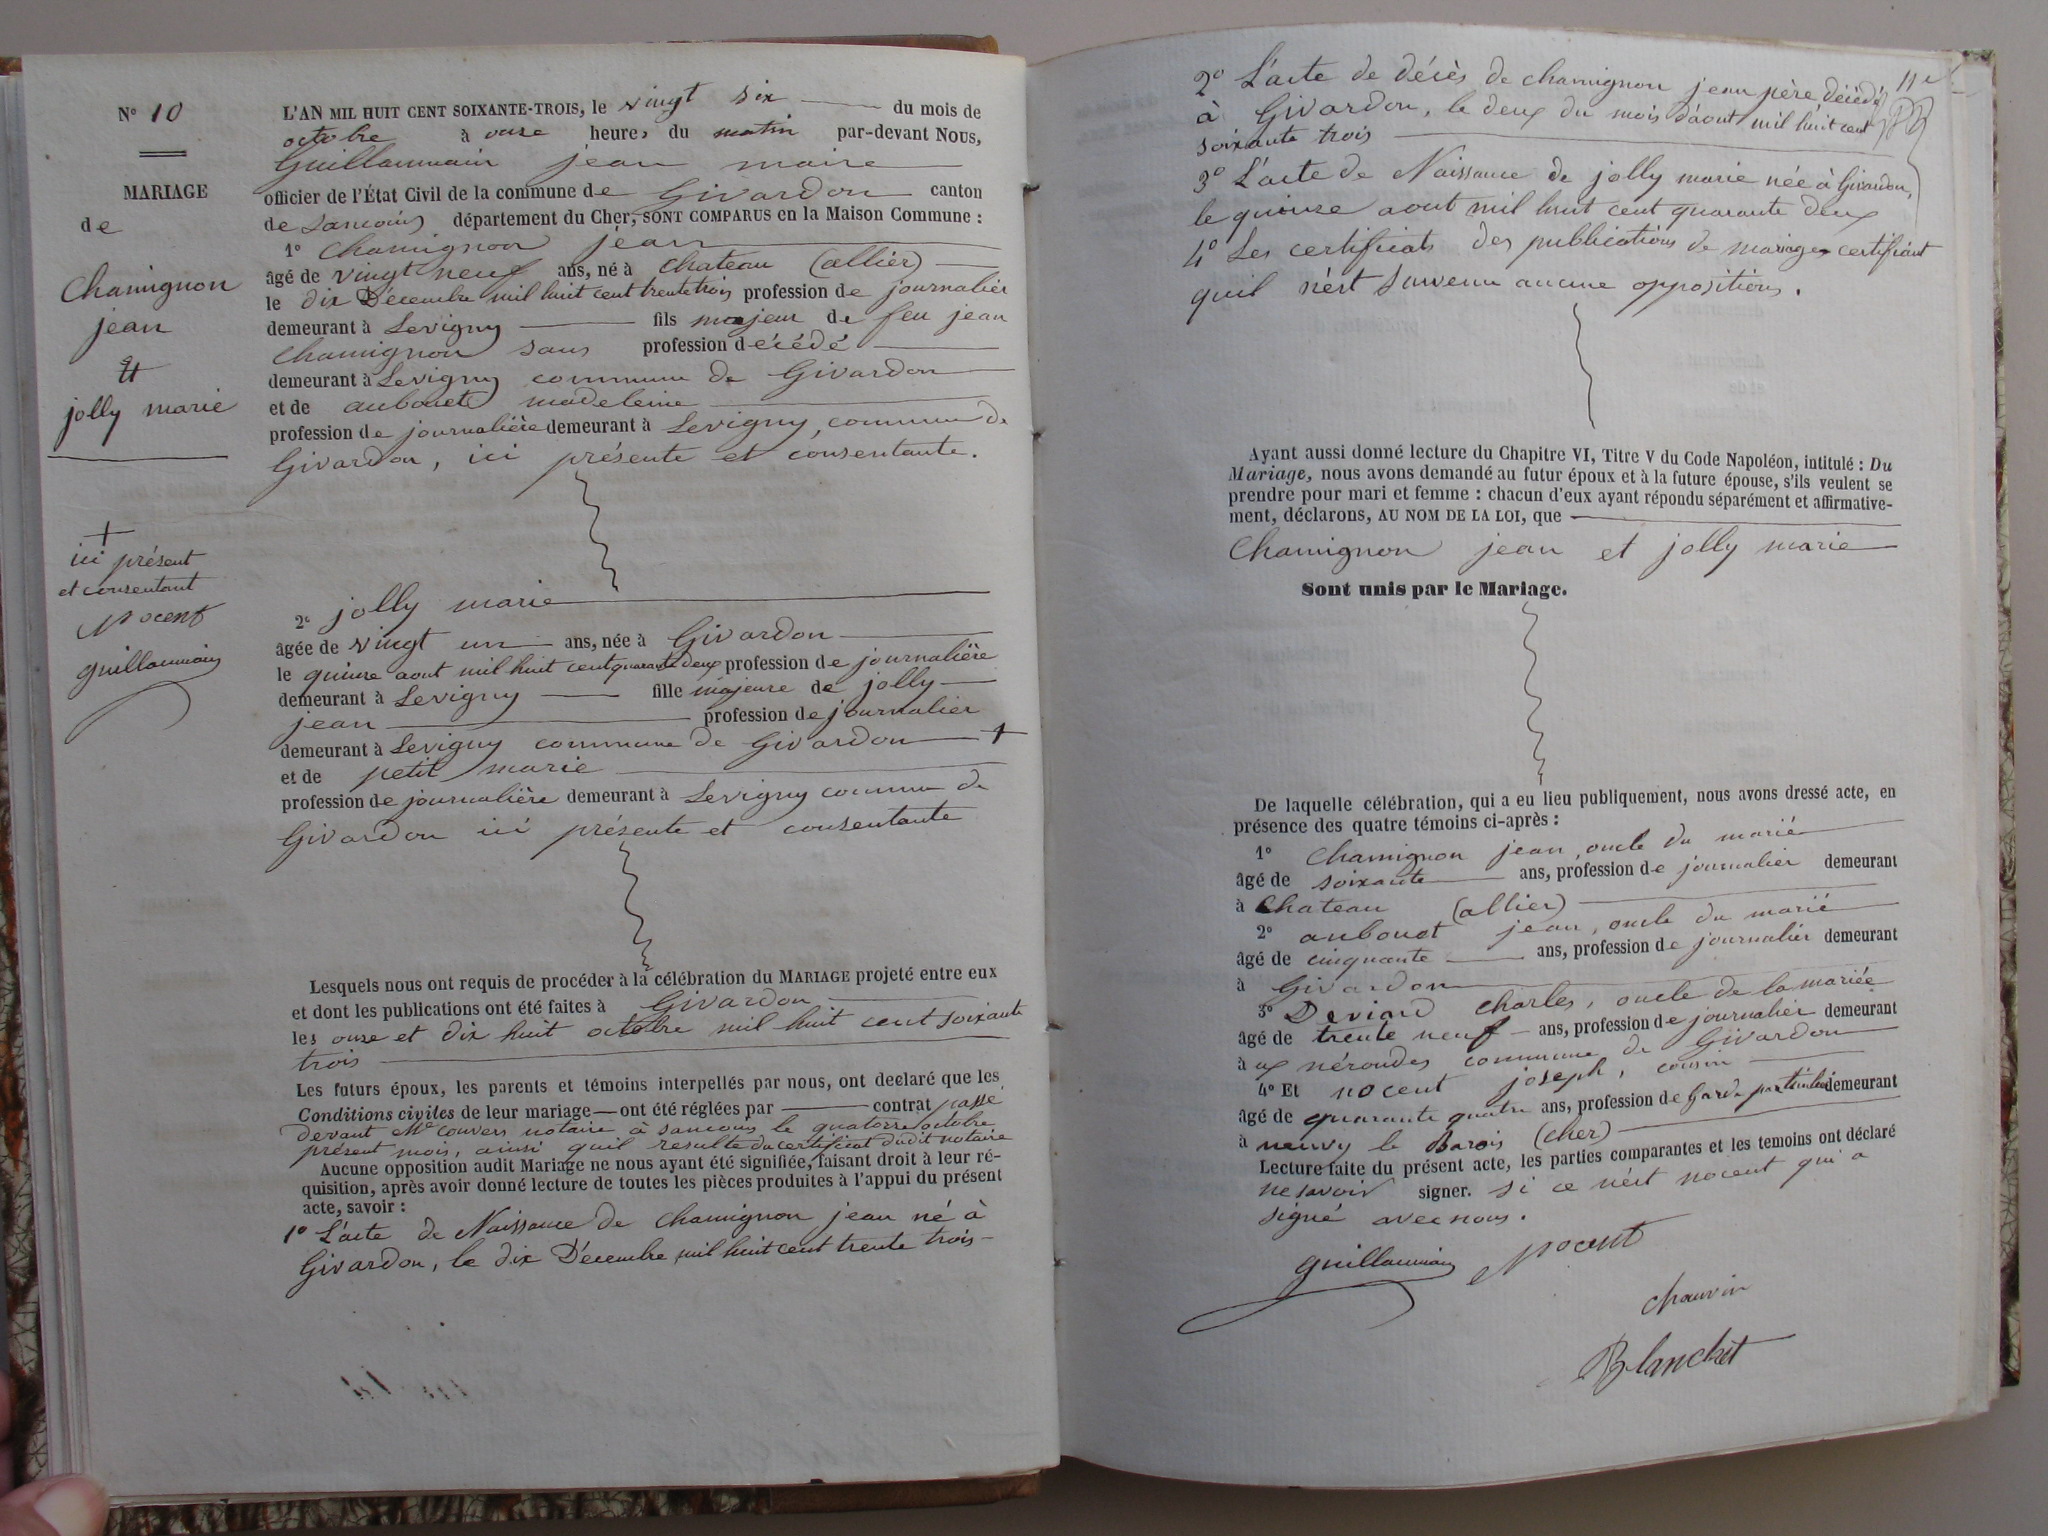 N° 10
MARIAGE
de
Chamignon
jean
et
jolly marie
L'AN MIL HUIT CENT SOIXANTE-TROIS, le vingt six du mois de
octobre à onze heures du matin par-devant Nous,
Guillaumain jean maire
officier de l'État Civil de la commune de Givardon canton
de Sancoins département du Cher, SONT COMPARUS en la Maison Commune :
1° Chamignon jean
âgé de vingt neuf ans, né à Chateau (allier)
le dix Décembre mil huit cent trente trois profession de journalier
demeurant à Levigny fils majeur de feu jean
Chamignon sans profession décédé
demeurant à Levigny commune de Givardon
et de aubouet madeleine
profession de journalière demeurant à Levigny, commune de
Givardon, ici présente et consentante.
+
ici présent
et consentant
Nocent
guillaumain
2° jolly marie
âgée de vingt un ans, née à Givardon
le quinze aout mil huit cent quarante deux profession de journalière
demeurant à Levigny fille majeure de jolly
jean profession de journalier
demeurant à Levigny commune de Givardon +
et de petit marie
profession de journalière demeurant à Levigny commune de
Givardon ici présente et consentante
Lesquels nous ont requis de procéder à la célébration du MARIAGE projeté entre eux
et dont les publications ont été faites à Givardon
les onze et dix huit octobre mil huit cent soixante
trois
Les futurs époux, les parents et témoins interpellés par nous, ont declaré que les
Conditions civiles de leur mariage — ont été réglées par contrat passé
devant Me couvers notaire à sancoins le quatorze octobre
présent mois, ainsi quil resulte du certificat dudit notaire
Aucune opposition audit Mariage ne nous ayant été signifiée, faisant droit à leur ré-
quisition, après avoir donné lecture de toutes les pièces produites à l'appui du présent
acte, savoir :
1° L'acte de Naissance de Chamignon jean né à
Givardon, le dix Décembre mil huit cent trente trois
11e
2° L'acte de décès de chamignon jean père, décédé
à Givardon, le deux du mois d'aout mil huit cent
soixante trois
3° L'acte de Naissance de jolly marie née à Givardon,
le quinze aout mil huit cent quarante deux
4° Les certificats des publications de mariage certifiant
quil n'est survenu aucune oppositions.
Ayant aussi donné lecture du Chapitre VI, Titre V du Code Napoléon, intitulé : Du
Mariage, nous avons demandé au futur époux et à la future épouse, s'ils veulent se
prendre pour mari et femme : chacun d'eux ayant répondu séparément et affirmative-
ment, déclarons, AU NOM DE LA LOI, que
Chamignon jean et jolly marie
Sont unis par le Mariage.
De laquelle célébration, qui a eu lieu publiquement, nous avons dressé acte, en
présence des quatre témoins ci-après :
1° Chamignon jean, oncle du marié
âgé de soixante ans, profession de journalier demeurant
à Chateau (allier)
2° aubouet jean, oncle du marié
âgé de cinquante ans, profession de journalier demeurant
à Givardon
3° Deviard Charles, oncle de la mariée
âgé de trente neuf ans, profession de journalier demeurant
à ux néroudes commune de Givardon
4° Et nocent joseph, cousin
âgé de quarante quatre ans, profession de Garde particulier demeurant
à neuvy le Barois (cher)
Lecture faite du présent acte, les parties comparantes et les temoins ont déclaré
ne savoir signer. si ce n'est nocent qui a
signé avec nous.
guillaumain Nocent
chauvin
Blanchet